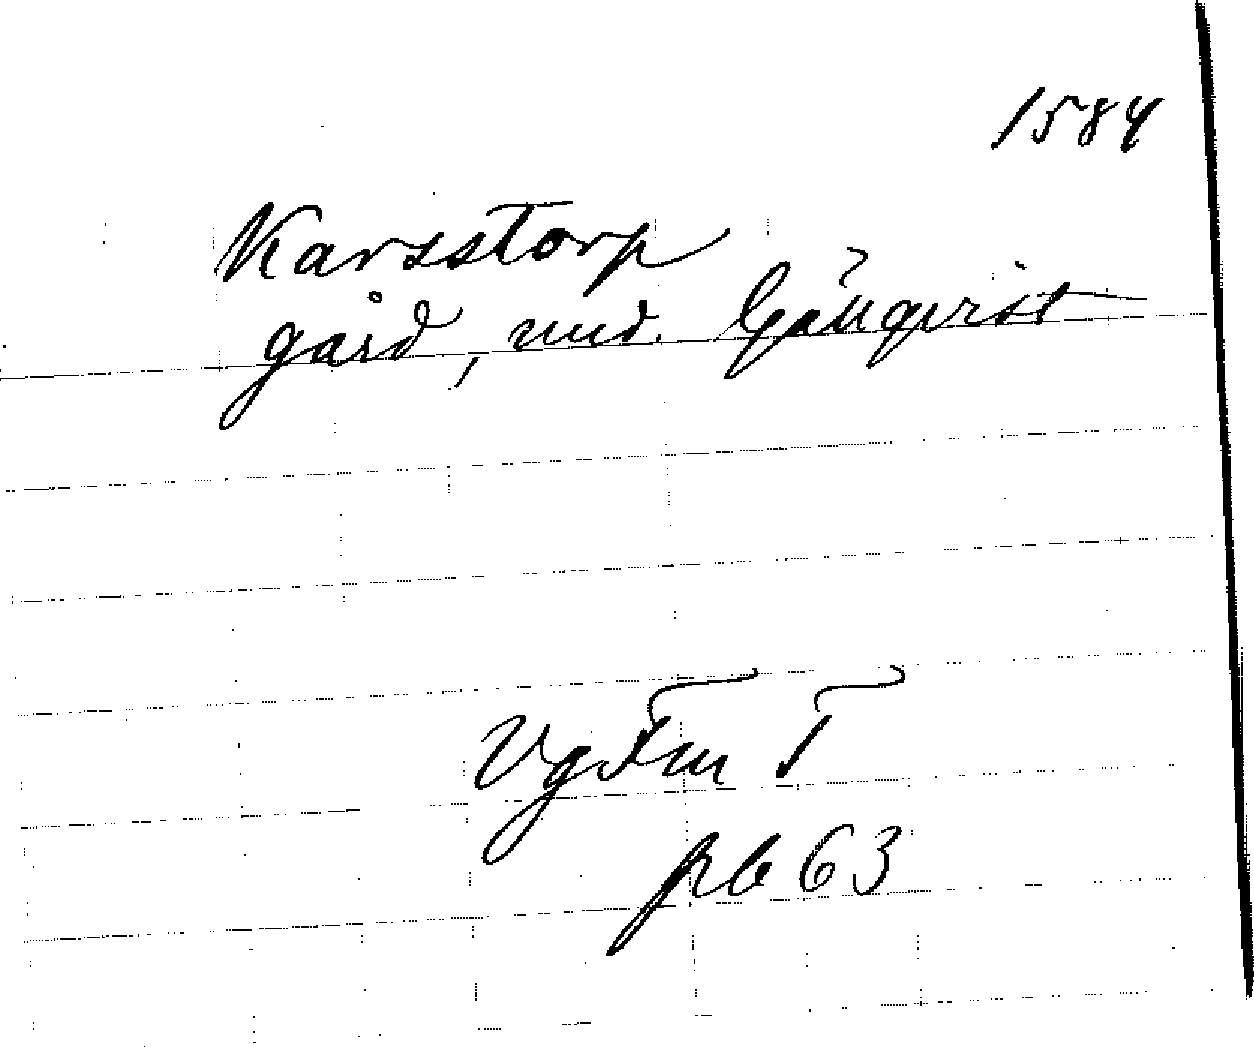 1584
Karsstorp
gård, und. Gällqvist
VgFmT
p 6 63